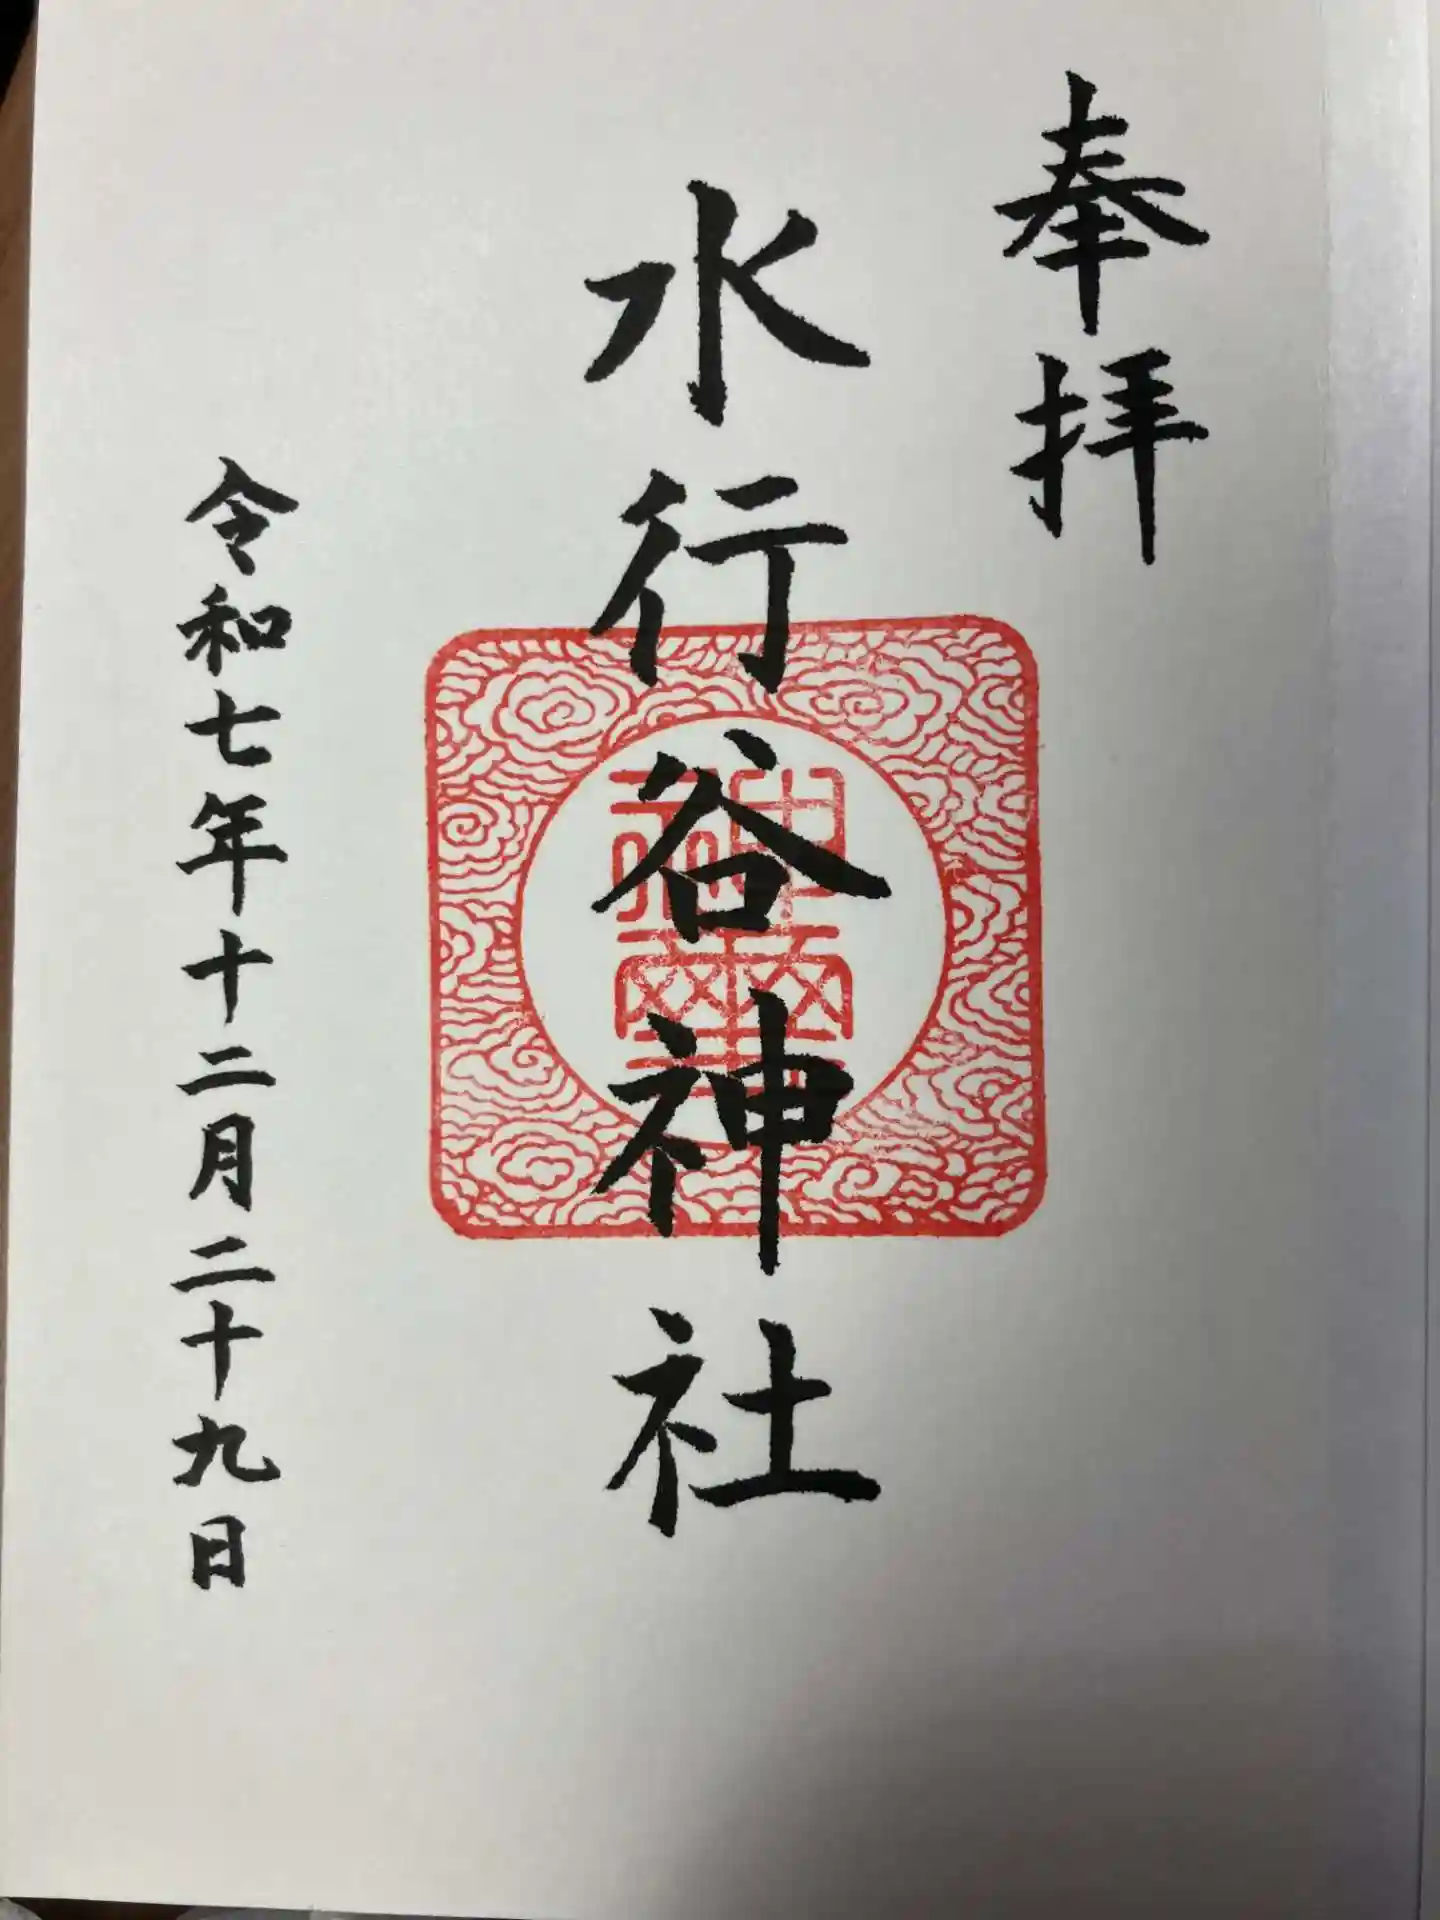 奉拝
水行谷神社
神璽
令和七年十二月二十九日